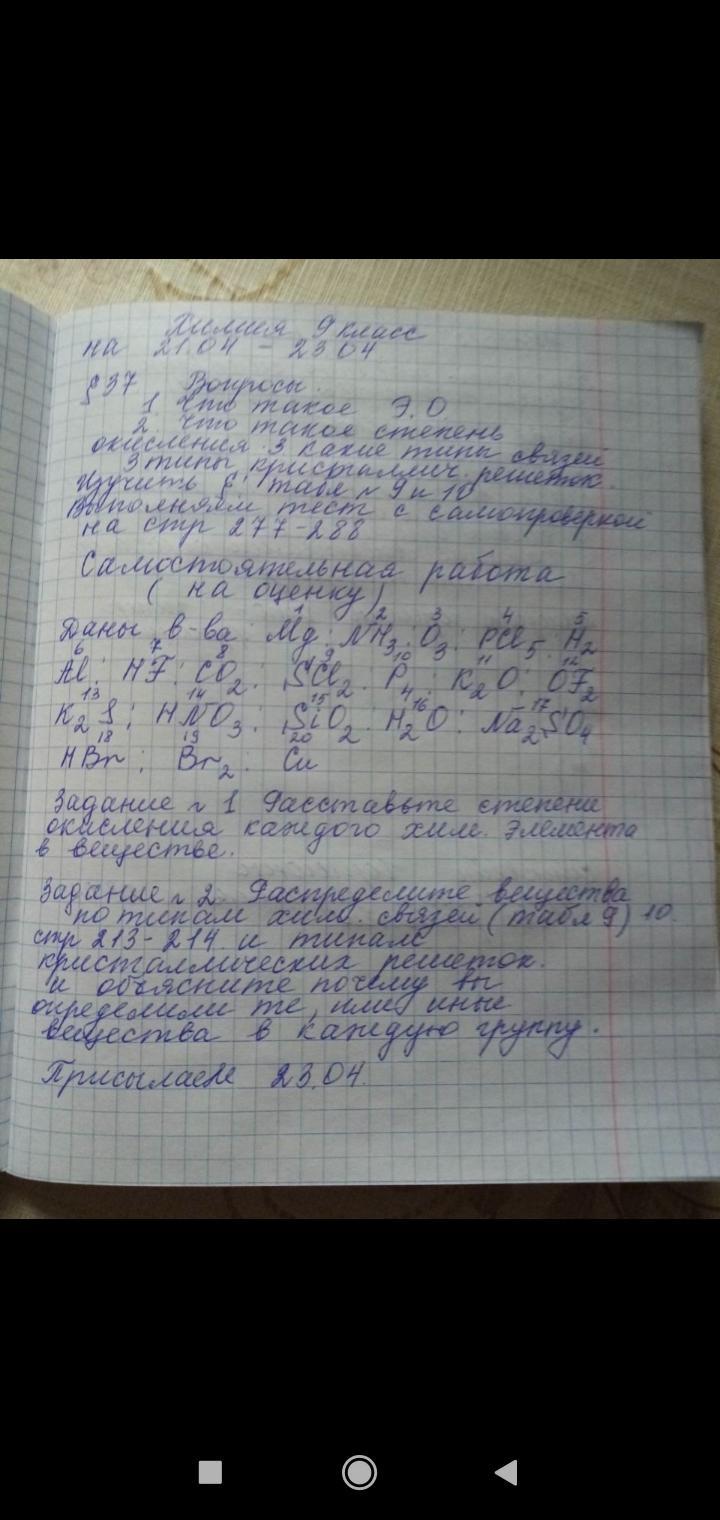 Химия 9 класс
на 21.04 - 23.04
§ 37 Вопросы.
1. Что такое Э.О.
2. Что такое степень
окисления 3 какие типы связей
3 типы кристаллич. решеток.
Изучить §, табл № 9 и 10
Выполняем тест с самопроверкой
на стр 277-288
Самостоятельная работа
( на оценку)
1 2 3 4 5
Даны в-ва: Mg; NH3; O3; PCl5; H2
6 7 8 9 10 11 12
Al; HF; CO2; SCl2; P4; K2O; OF2
13 14 15 16 17
K2S; HNO3; SiO2; H2O; Na2SO4
18 19 20
HBr; Br2; Cu
Задание № 1 Расставьте степени
окисления каждого хим. элемента
в веществе.
Задание № 2. Распределите вещества
по типам хим. связей (табл 9) 10.
стр 213-214 и типам
кристаллических решеток.
и объясните почему вы
определили те или иные
вещества в каждую группу.
Присылаем 23.04.